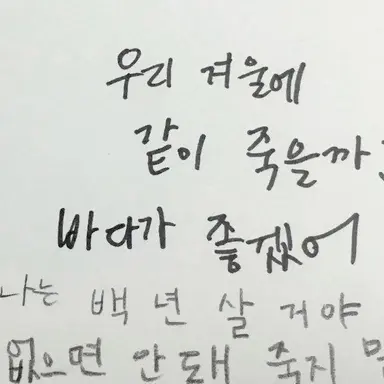 우리 겨울에
같이 죽을까
바다가 좋겠어
나는 백 년 살 거야
없으면 안 돼 죽지